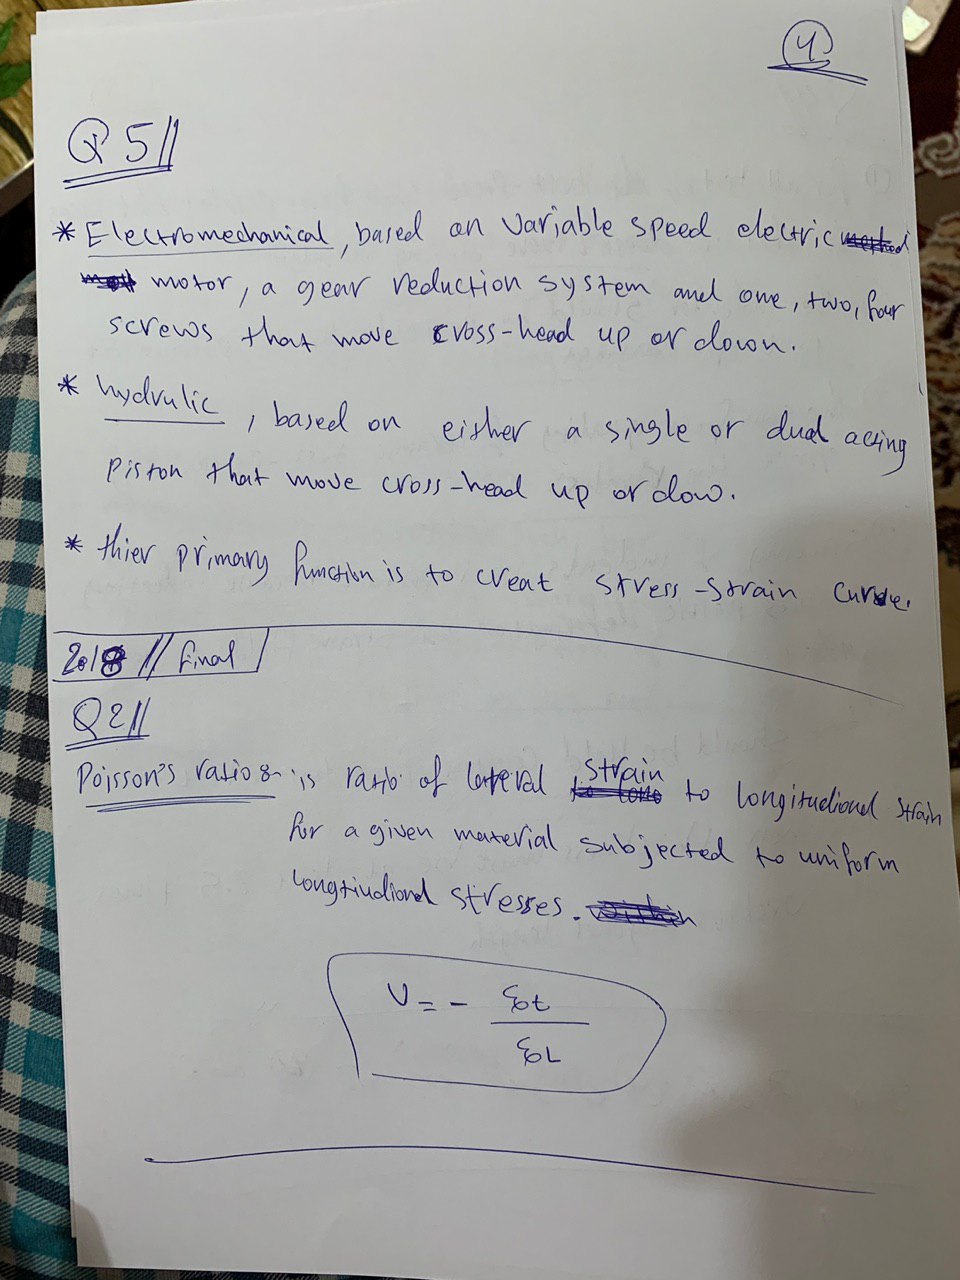 4
Q 5//
* Electromechanical, based on variable speed electric
motor, a gear reduction system and one, two, four
screws that move cross-head up or down.
* hydrulic, based on either a single or dual acting
piston that move cross-head up or dow.
* thier primary function is to creat stress-strain curve.
2018 // final
Q2//
Poisson's ratio:- is ratio of lateral strain to longitudional strain
for a given material subjected to uniform
longtiudional stresses.
υ = - εt
εL